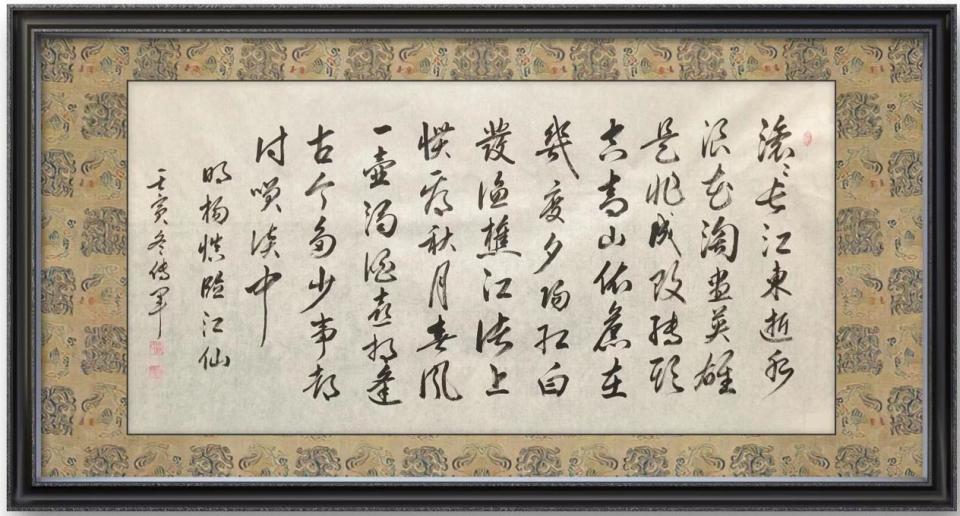 滚〻长江東逝水
浪花淘盡英雄
是非成败转头
空青山依舊在
幾度夕陽红白
發渔樵江渚上
惯看秋月春風
一壶濁酒喜相逢
古今多少事都
付笑谈中
明杨慎临江仙
壬寅冬传军